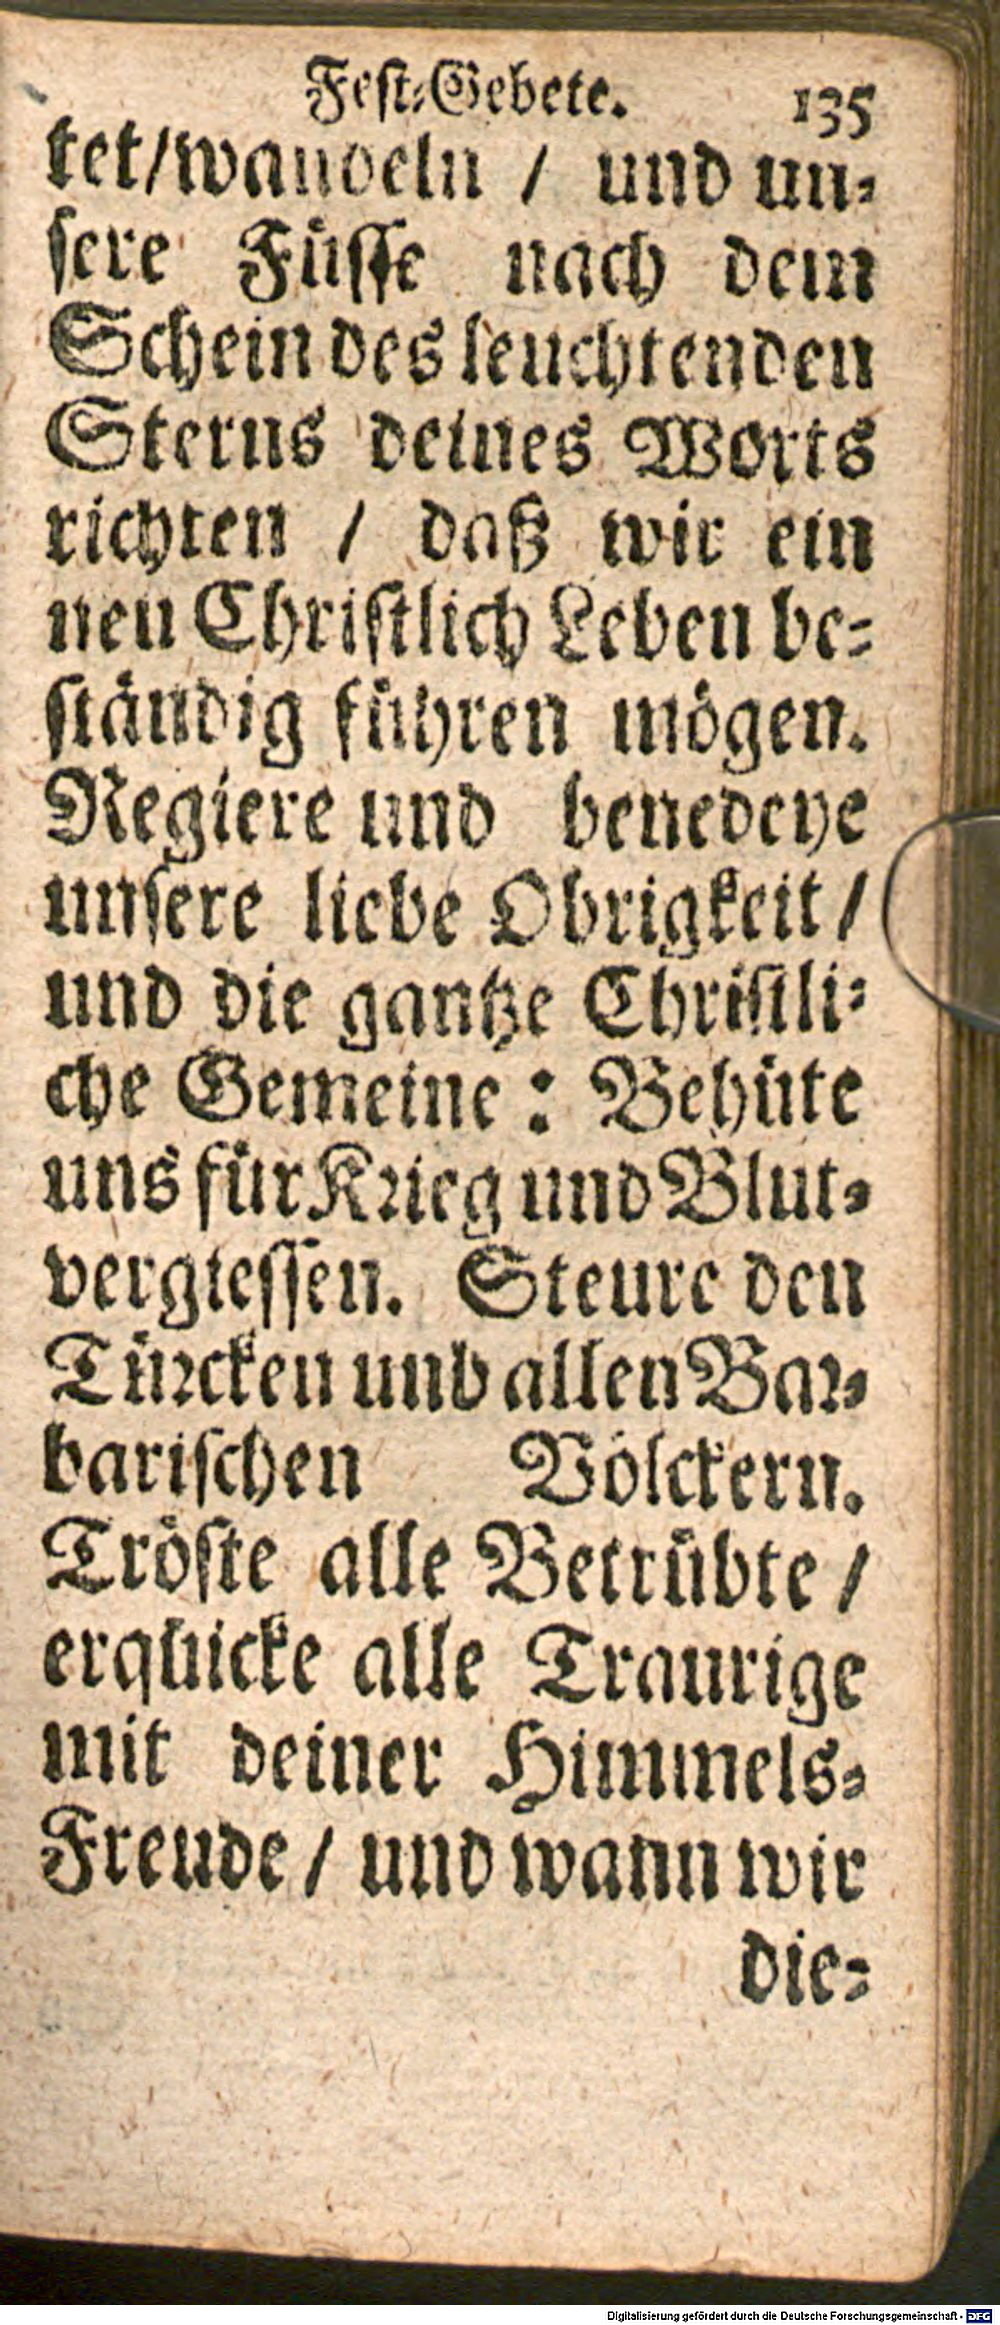 Fest-Gebete. 135
tet/wandeln / und un-
sere Füsse nach dem
Schein des leuchtenden
Sterns deines Worts
richten / daß wir ein
neu Christlich Leben be-
ständig führen mögen.
Regiere und benedeye
unsere liebe Obrigkeit /
und die gantze Christli-
che Gemeine : Behüte
uns für Krieg und Blut-
vergiessen. Steure den
Türcken und allen Bar-
barischen Völckern.
Tröste alle Betrübte /
erquicke alle Traurige
mit deiner Himmels-
Freude / und wann wir
die-
Digitalisierung gefördert durch die Deutsche Forschungsgemeinschaft - DFG